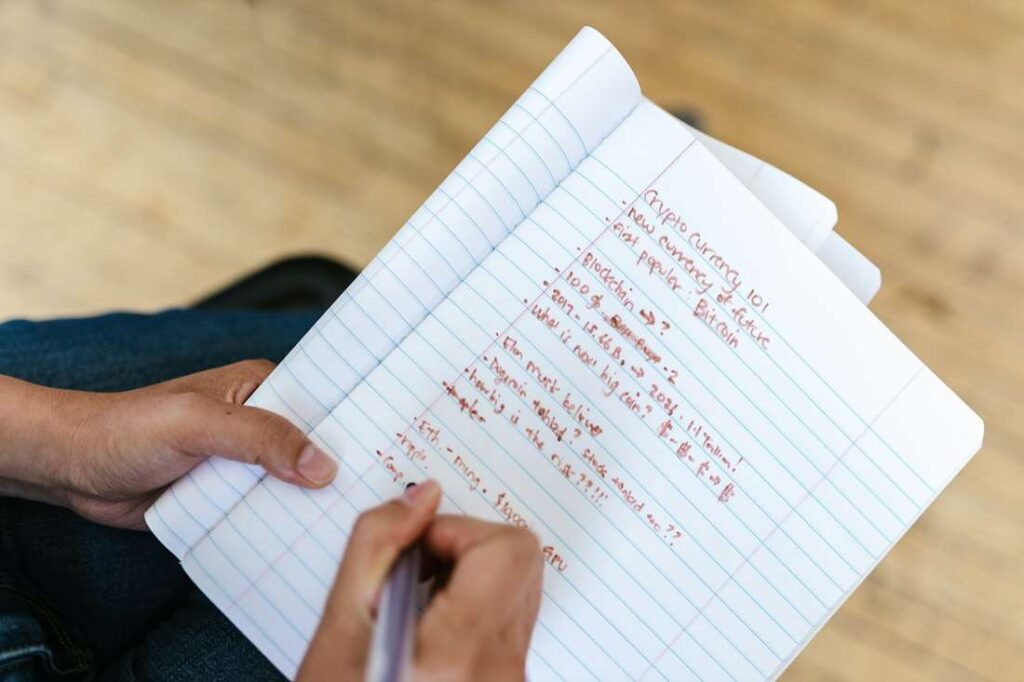 Cryptocurrency 101
- new currency of future
- first popular - Bitcoin
- Blockchain → ?
- 100 $
- 2017 - 15.66 B. → 2021 1.1 Trillion!
- What is next big coin?
- Elon musk believer
- Dogecoin tanked? stock tanked too??
- how big is the risk??!!!
- Eth. - mining.
- ripple.
GPU